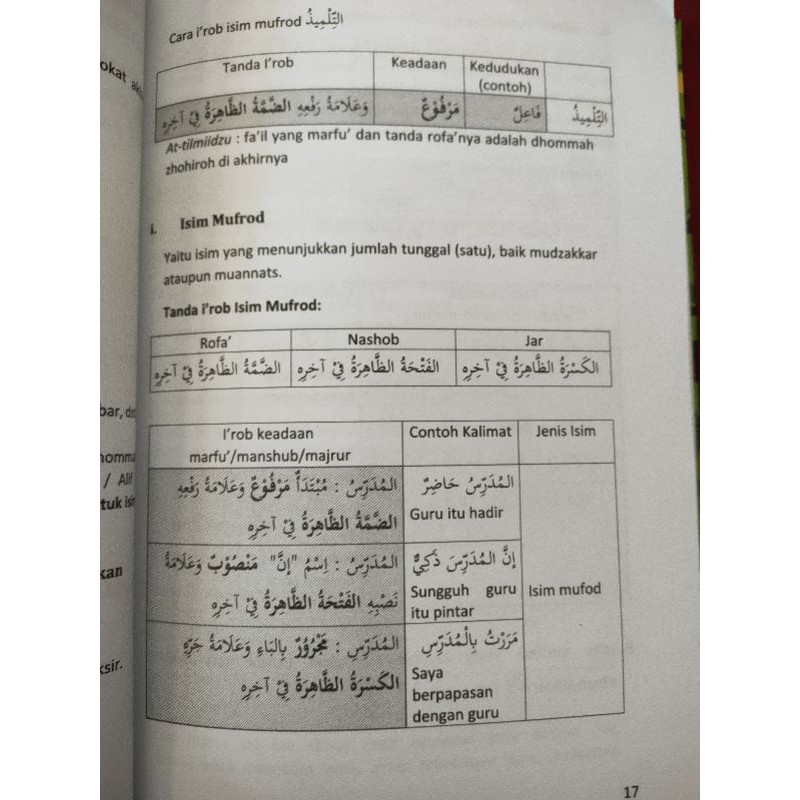 Cara i'rob isim mufrod التِّلْمِيذُ
Tanda I'rob Keadaan Kedudukan (contoh)
التِّلْمِيذُ فَاعِلٌ مَرْفُوْعٌ وَعَلَامَةُ رَفْعِهِ الضَّمَّةُ الظَّاهِرَةُ فِيْ آخِرِهِ
At-tilmiidzu : fa'il yang marfu' dan tanda rofa'nya adalah dhommah
zhohiroh di akhirnya
i. Isim Mufrod
Yaitu isim yang menunjukkan jumlah tunggal (satu), baik mudzakkar
ataupun muannats.
Tanda i'rob Isim Mufrod:
Rofa' Nashob Jar
الضَّمَّةُ الظَّاهِرَةُ فِيْ آخِرِهِ
الفَتْحَةُ الظَّاهِرَةُ فِيْ آخِرِهِ
الكَسْرَةُ الظَّاهِرَةُ فِيْ آخِرِهِ
I'rob keadaan
marfu'/manshub/majrur
Contoh Kalimat
Jenis Isim
المُدَرِّسُ : مُبْتَدَأٌ مَرْفُوْعٌ وَعَلَامَةُ رَفْعِهِ
الضَّمَّةُ الظَّاهِرَةُ فِيْ آخِرِهِ
المُدَرِّسُ حَاضِرٌ
Guru itu hadir
المُدَرِّسَ : اِسْمُ "إِنَّ" مَنْصُوْبٌ وَعَلَامَةُ
نَصْبِهِ الفَتْحَةُ الظَّاهِرَةُ فِيْ آخِرِهِ
إِنَّ المُدَرِّسَ ذَكِيٌّ
Sungguh guru
itu pintar
Isim mufod
المُدَرِّسِ : مَجْرُوْرٌ بِالبَاءِ وَعَلَامَةُ جَرِّهِ
الكَسْرَةُ الظَّاهِرَةُ فِيْ آخِرِهِ
مَرَرْتُ بِالْمُدَرِّسِ
Saya
berpapasan
dengan guru
17